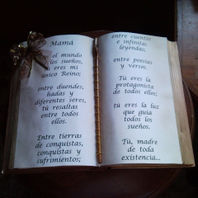 Mamá
el mundo
los sueños,
eres mi
único Reino;
entre duendes,
hadas y
diferentes seres,
tú resaltas
entre todos
ellos.
Entre tierras
de conquistas,
conquistas y
sufrimientos;
entre cuentos
e infinitas
leyendas,
entre poesías
y versos.
Tú eres la
protagonista
de todos ellos;
tú eres la luz
que guía
todos los
sueños.
Tú, madre
de toda
existencia...